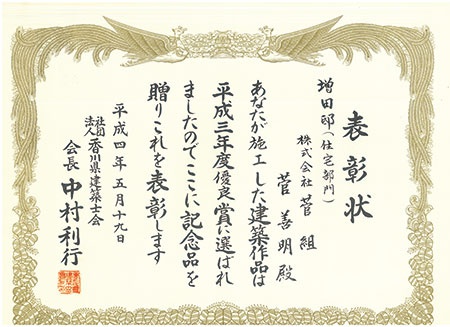 表彰状
増田邸（住宅部門）
株式会社菅組
菅善明殿
あなたが施工した建築作品は
平成三年度優良賞に選ばれ
ましたのでここに記念品を
贈りこれを表彰します
平成四年五月十九日
社団法人香川県建築士会
会長中村利行